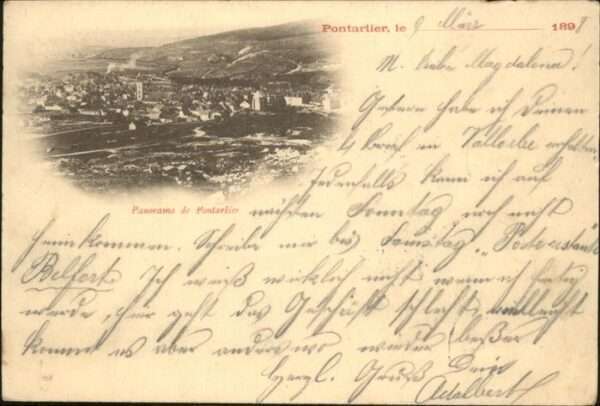 Pontarlier, le 9 März 1898
M. liebe Magdalena!
Gestern habe ich Deinen
l. Brief in Vallorbe erhalten.
Jedenfalls kann ich auf
Panorama de Pontarlier
nächsten Sonntag noch nicht
heimkommen. Schreibe mir bis Samstag "Poste restante
Belfort. Ich weiß wirklich nicht wenn ich fertig
werde, hier geht das Geschäft schlecht, vielleicht
kommt es aber anderswo wieder besser
Herzl. Gruß Dein
Adalbert